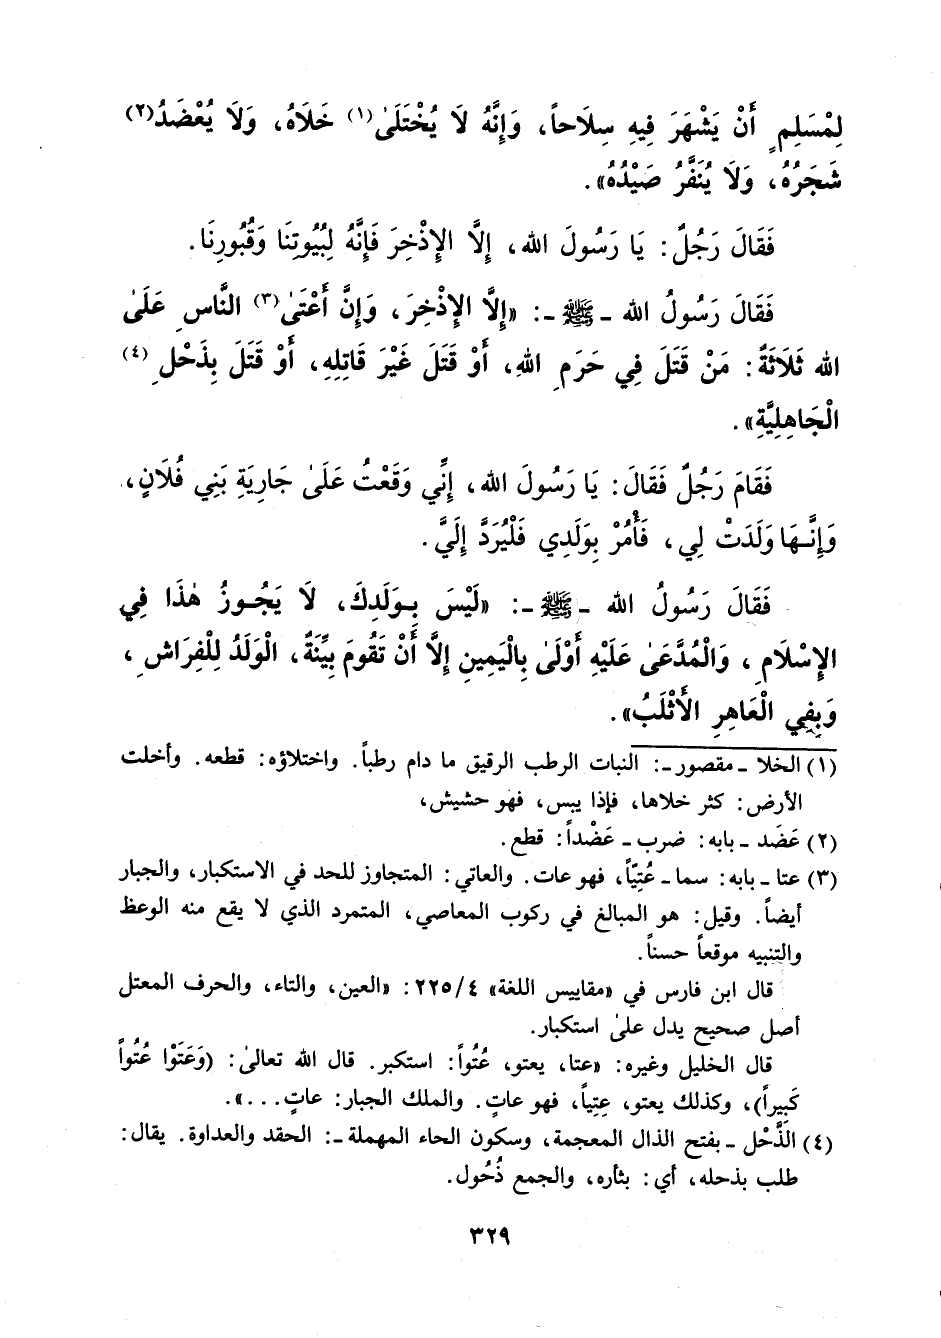 لِمُسْلِمٍ أَنْ يَشْهَرَ فِيهِ سِلَاحاً، وَإِنَّهُ لَا يُخْتَلَىٰ(١) خَلَاهُ، وَلَا يُعْضَدُ(٢)
شَجَرُهُ، وَلَا يُنَفَّرُ صَيْدُهُ».
فَقَالَ رَجُلٌ: يَا رَسُولَ الله، إِلَّا الإِذْخِرَ فَإِنَّهُ لِبُيُوتِنَا وَقُبُورِنَا.
فَقَالَ رَسُولُ الله ـ ﷺ ـ: «إِلَّا الإِذْخِرَ، وَإِنَّ أَعْتَىٰ(٣) النَّاسِ عَلَىٰ
الله ثَلَاثَةٌ: مَنْ قَتَلَ فِي حَرَمِ اللهِ، أَوْ قَتَلَ غَيْرَ قَاتِلِهِ، أَوْ قَتَلَ بِذَحْلِ(٤)
الْجَاهِلِيَّةِ».
فَقَامَ رَجُلٌ فَقَالَ: يَا رَسُولَ الله، إِنِّي وَقَعْتُ عَلَىٰ جَارِيَةِ بَنِي فُلَانٍ،
وَإِنَّـهَا وَلَدَتْ لِي، فَأْمُرْ بِوَلَدِي فَلْيُرَدَّ إِلَيَّ.
فَقَالَ رَسُولُ الله ـ ﷺ ـ: «لَيْسَ بِـوَلَدِكَ، لَا يَجُـوزُ هٰذَا فِي
الإِسْلَامِ، وَالْمُدَّعَىٰ عَلَيْهِ أَوْلَىٰ بِالْيَمِينِ إِلَّا أَنْ تَقُومَ بَيِّنَةٌ، الْوَلَدُ لِلْفِرَاشِ،
وَبِفِي الْعَاهِرِ الأَثْلَبُ».
(١) الخلا ـ مقصور ـ: النبات الرطب الرقيق ما دام رطباً. واختلاؤه: قطعه. وأخلت
الأرض: كثر خلاها، فإذا يبس، فهو حشيش،
(٢) عَضَد ـ بابه: ضرب ـ عَضْداً: قطع.
(٣) عتا ـ بابه: سما ـ عُتِيّاً، فهو عات. والعاتي: المتجاوز للحد في الاستكبار، والجبار
أيضاً. وقيل: هو المبالغ في ركوب المعاصي، المتمرد الذي لا يقع منه الوعظ
والتنبيه موقعاً حسناً.
قال ابن فارس في «مقاييس اللغة» ٢٢٥/٤: «العين، والتاء، والحرف المعتل
أصل صحيح يدل علىٰ استكبار.
قال الخليل وغيره: «عتا، يعتو، عُتُواً: استكبر. قال الله تعالىٰ: (وَعَتَوْا عُتُواً
كَبِيراً)، وكذلك يعتو، عِتِياً، فهو عاتٍ. والملك الجبار: عاتٍ...».
(٤) الذَّحْل ـ بفتح الذال المعجمة، وسكون الحاء المهملة ـ: الحقد والعداوة. يقال:
طلب بذحله، أي: بثأره، والجمع ذُحُول.
٣٢٩